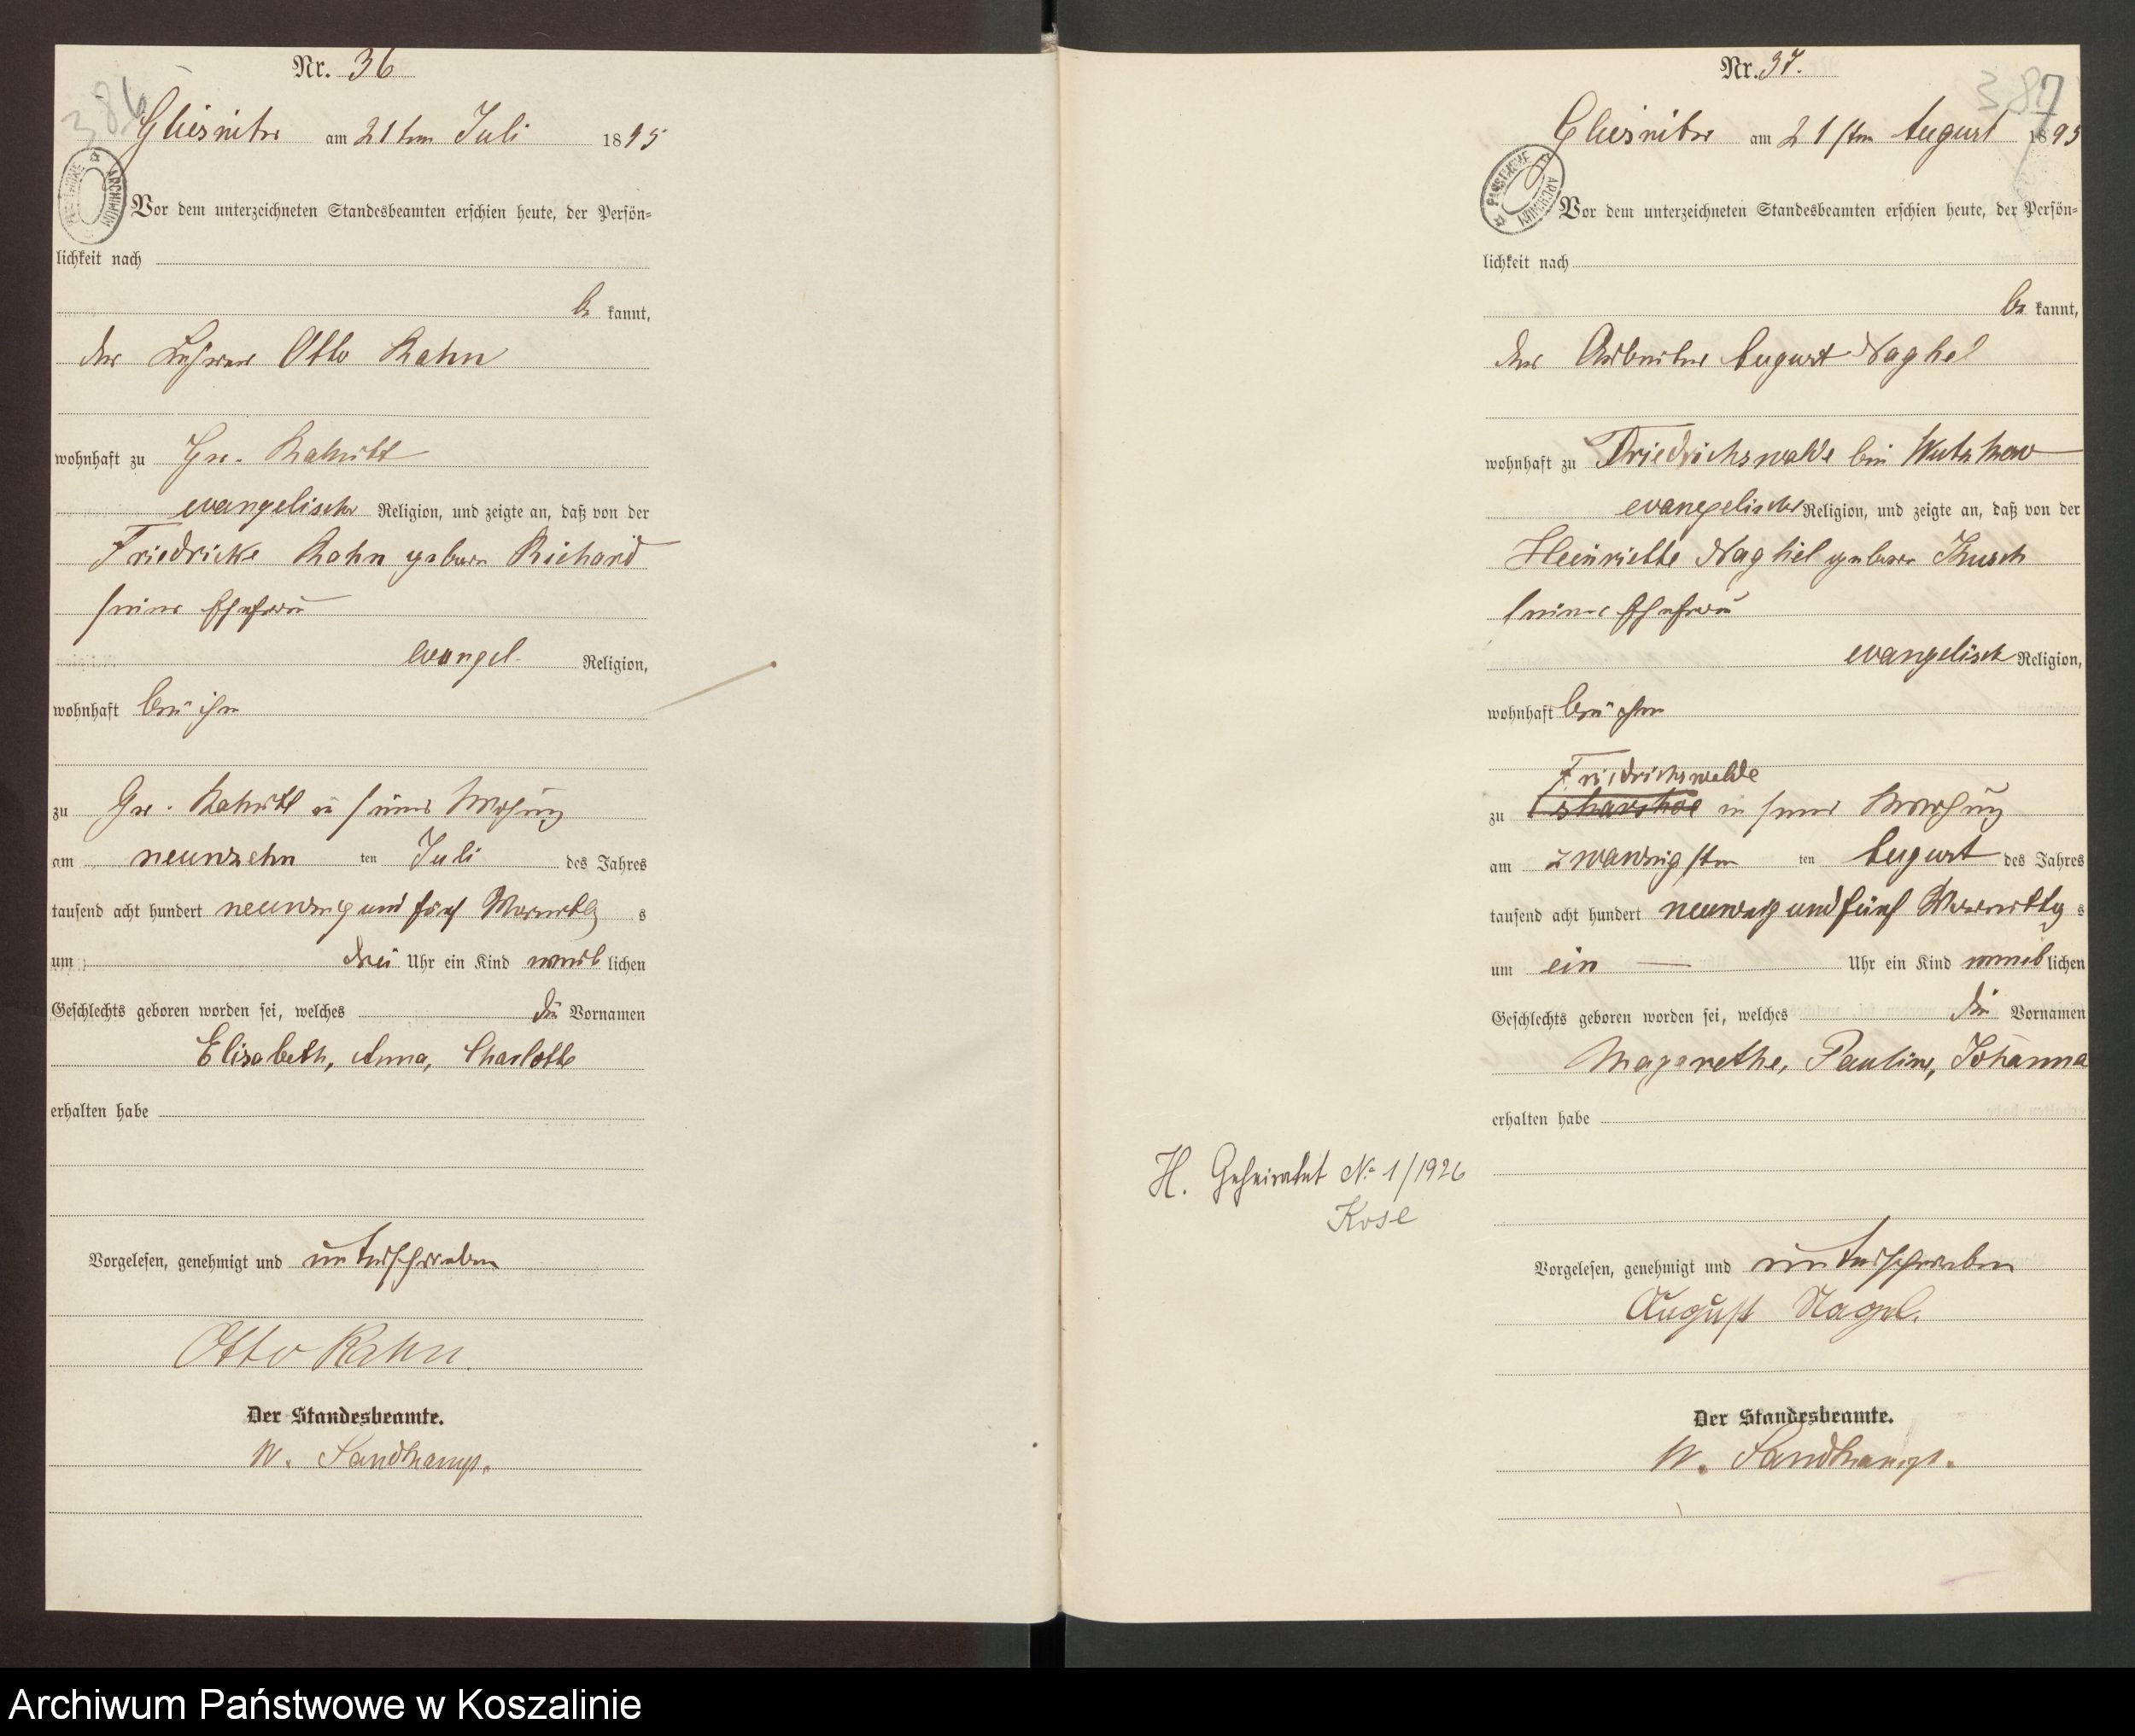 Nr. 36
386
Gliesnitz am 21ten Juli 1895
ARCHIWUM
Vor dem unterzeichneten Standesbeamten erschien heute, der Persön-
lichkeit nach
be kannt,
der Lehrer Otto Rahn
wohnhaft zu Gr.
evangelischer Religion, und zeigte an, daß von der
Friedricke Rahn geboren Richard
seiner Ehefrau
evangel. Religion,
wohnhaft bei ihm
zu Gr. in seiner Wohnung
am neunzehn ten Juli des Jahres
tausend acht hundert neunzig und fünf Vormittag s
um drei Uhr ein Kind weib lichen
Geschlechts geboren worden sei, welches die Vornamen
Elisabeth, Anna, Charlotte
erhalten habe
Vorgelesen, genehmigt und unterschrieben
Otto Rahn.
Der Standesbeamte.
W. Sandkamp.
Nr. 37.
387
Gliesnitz am 21sten August 1895
PAŃSTWOWE ARCHIWUM
Vor dem unterzeichneten Standesbeamten erschien heute, der Persön-
lichkeit nach
be kannt,
der Arbeiter August Naghel
wohnhaft zu Friedrichswalde bei Wutzkow
evangelischer Religion, und zeigte an, daß von der
Heinriette Naghel geboren Kusch
seiner Ehefrau
evangelisch Religion,
wohnhaft bei ihm
Friedrichswalde
zu in seiner Wohnung
am zwanzigsten ten August des Jahres
tausend acht hundert neunzig und fünf Vormittag s
um ein Uhr ein Kind weib lichen
Geschlechts geboren worden sei, welches die Vornamen
Magarethe, Pauline, Johanna
erhalten habe
H. Geheiratet No 1/1926
Kose
Vorgelesen, genehmigt und unterschrieben
August Nagel.
Der Standesbeamte.
W. Sandkamp.
Archiwum Państwowe w Koszalinie